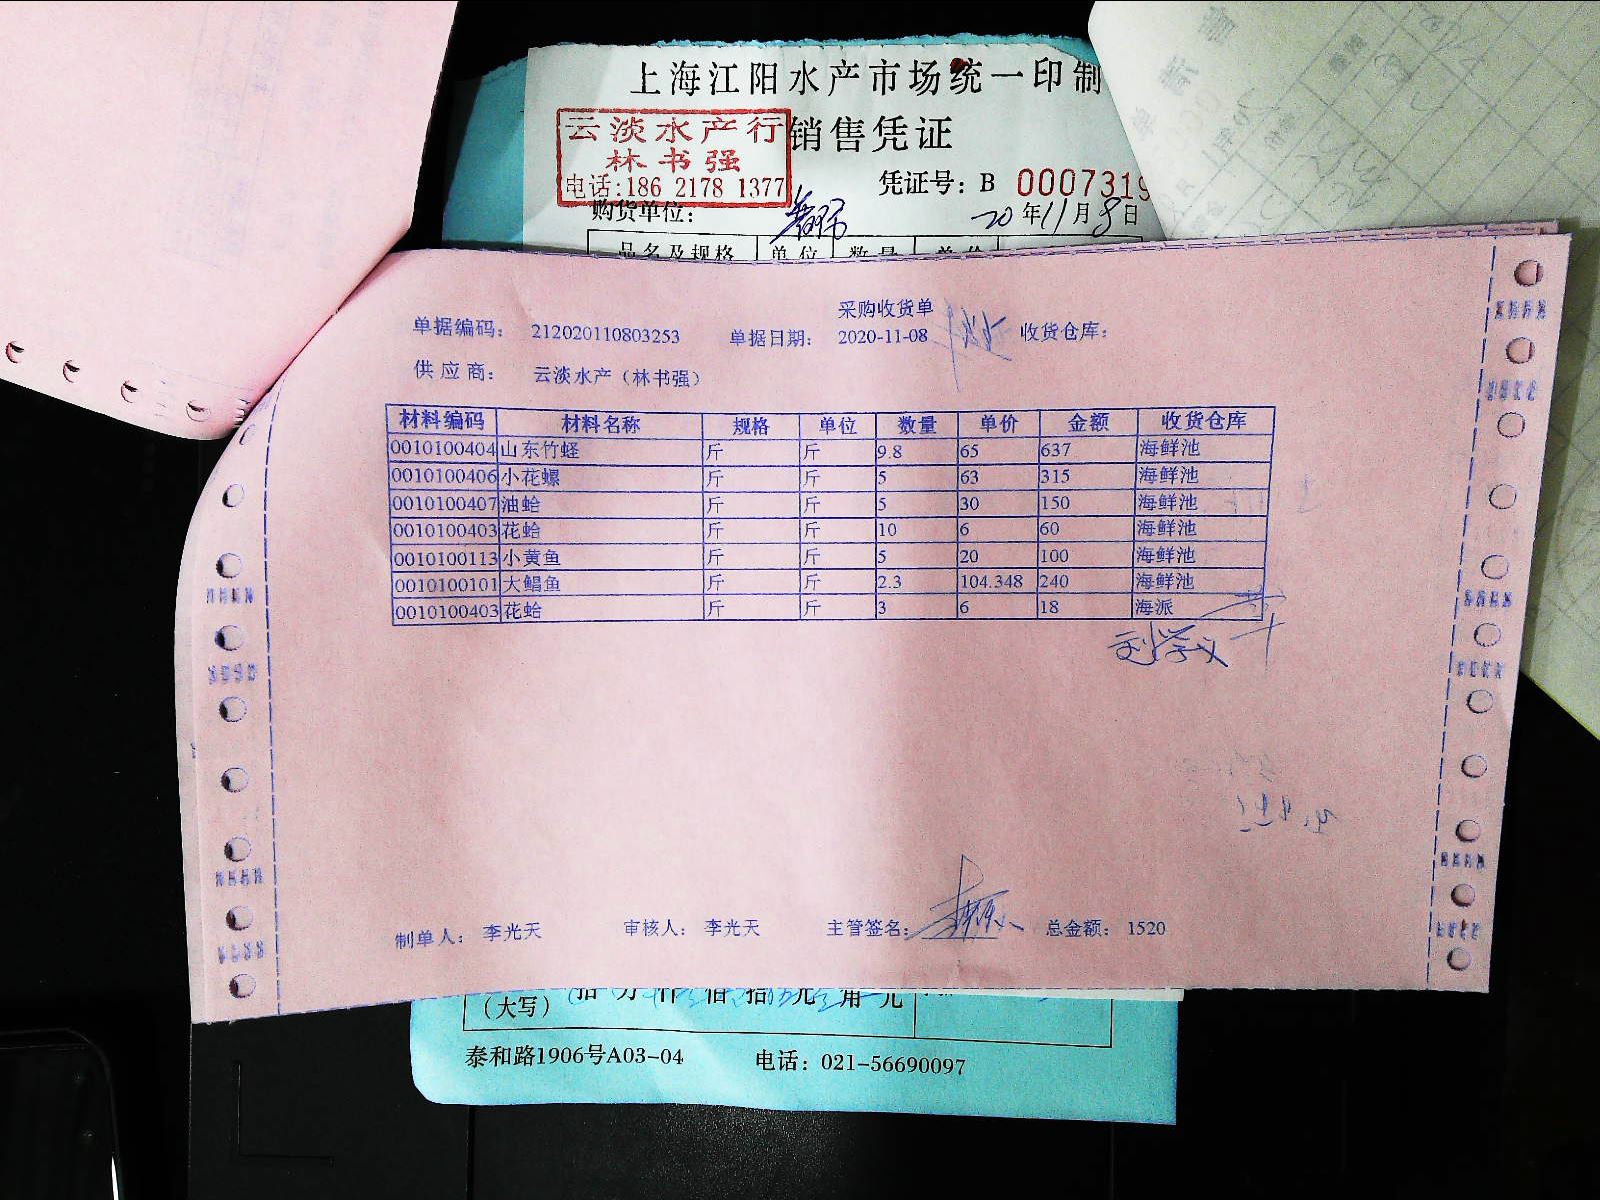 上海江阳水产市场统一印制
云淡水产行
林书强
电话:186 2178 1377
销售凭证
凭证号: B 0007319
购货单位:
20年11月8日
品名及规格 单位 数量 单价
采购收货单
单据编码: 212020110803253 单据日期: 2020-11-08 收货仓库:
供应商: 云淡水产（林书强）
材料编码 材料名称 规格 单位 数量 单价 金额 收货仓库
0010100404 山东竹蛏 斤 斤 9.8 65 637 海鲜池
0010100406 小花螺 斤 斤 5 63 315 海鲜池
0010100407 油蛤 斤 斤 5 30 150 海鲜池
0010100403 花蛤 斤 斤 10 6 60 海鲜池
0010100113 小黄鱼 斤 斤 5 20 100 海鲜池
0010100101 大鲳鱼 斤 斤 2.3 104.348 240 海鲜池
0010100403 花蛤 斤 斤 3 6 18 海派
刘学义
制单人: 李光天 审核人: 李光天 主管签名: 总金额: 1520
（大写） 拾 万 仟 佰 拾 元 角 元
泰和路1906号A03-04 电话: 021-56690097